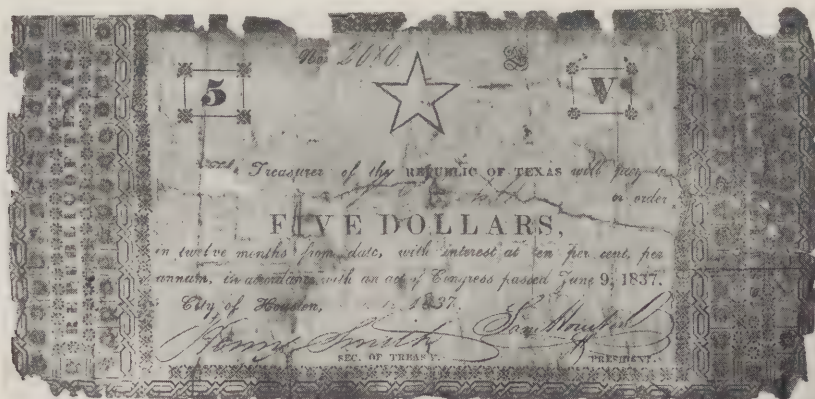 REPUBLIC OF TEXAS
No. 2080
5
V
Treasurer of the REPUBLIC OF TEXAS will pay to
or order,
FIVE DOLLARS,
in twelve months from date, with interest at ten per cent, per
annum, in accordance with an act of Congress passed June 9, 1837.
City of Houston, 1837.
Henry Smith Sam Houston
SEC. OF TREASY. PRESIDENT.